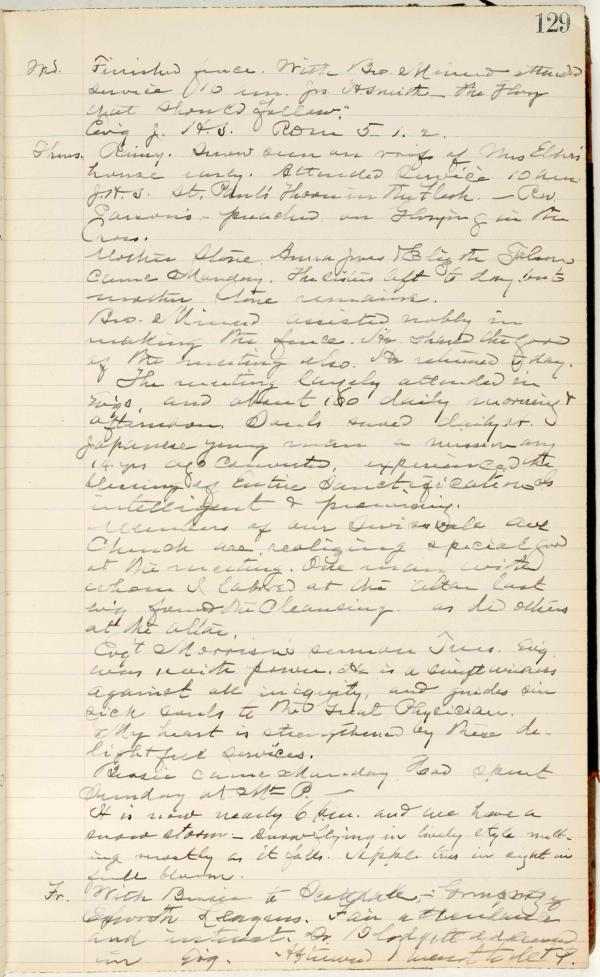 129
Wed. Finished fence. With Bro. Minerd attended
service 10 a.m. Jos. H. Smith — The Glory
that should follow."
Ev'g J. H. S. Rom 5. 1. 2.
Thurs. Rainy. Snow seen on roof of Mrs
house early. Attended service 10 a.m.
J. H. S. St. Paul's Thorn in the Flesh. — Rev.
preached on Glorying in the
Cross.
Mother Stone, Anna Jones & Elizbth
came Monday. The sisters left to day but
mother Stone remains.
Bro. Minerd assisted nobly in
making the fence. He shared the good
of the meeting also. He returned to day.
The meeting largely attended in
ev'gs, and about 150 daily morning &
afternoon. Souls saved daily. A
Japanese young man a missionary
14 yrs ago converted, experienced the
blessing of Entire Sanctification. Is
intelligent & promising.
Members of our Swissvale Ave
Church are realizing special good
at the meeting. One man with
whom I labored at the altar last
ev'g found the Cleansing as did others
at the altar.
Evgt Morrison's sermon Tues. Evg.
was with power. He is a swift witness
against all iniquity, and guides sin
sick souls to the Great Physician.
My heart is strengthened by these de-
lightful services.
Bessie came Monday. Had spent
Sunday at Mt. P. —
It is now nearly 6 p.m. and we have a
snow storm — snow flying in lively style melt-
ing mostly as it falls. Apple trees in sight in
full bloom.
Fr. With Bessie to Scottdale, —
Epworth Leagues. Fair attendance
and interest. Dr. Blodgett addressed
in Evg. I went to Mt. P.